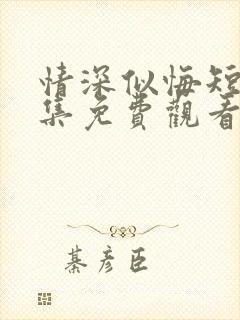 情深似悔短
集免費觀看
綦彥臣